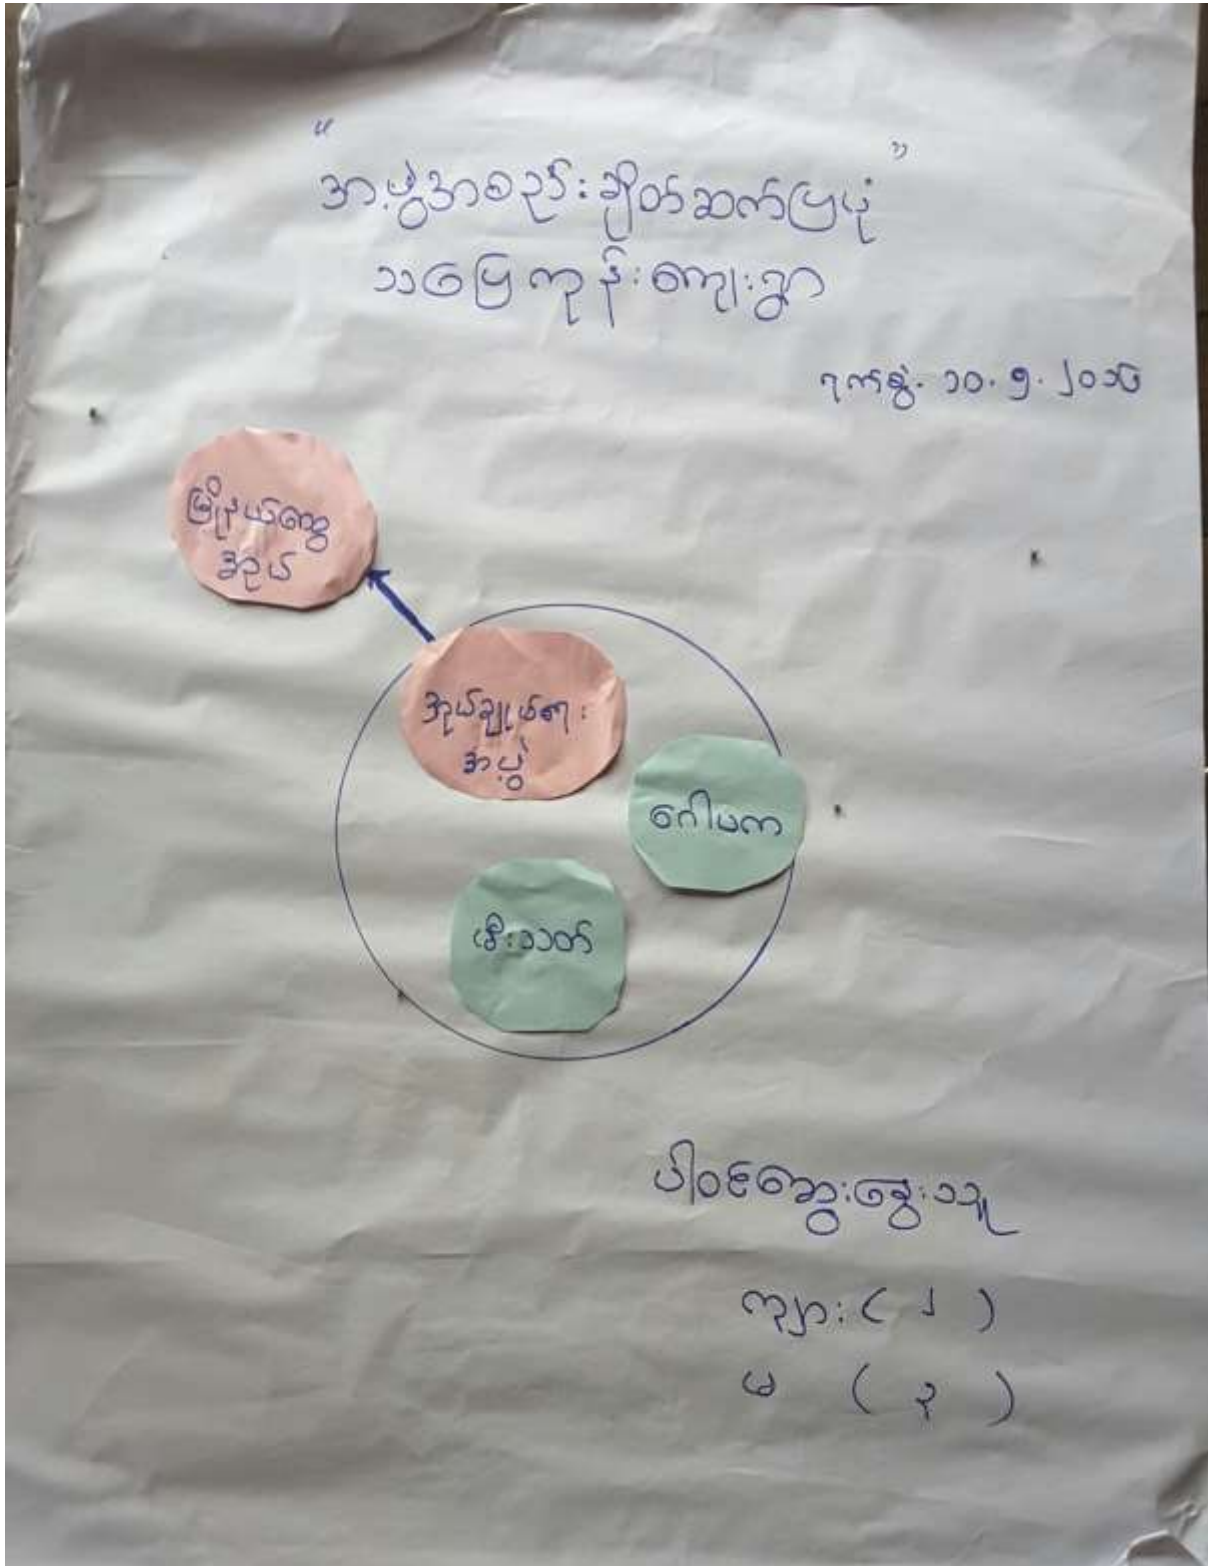 "အဖွဲ့အစည်းချိတ်ဆက်ပြပုံ"
သပြေကုန်းကျေးရွာ
ရက်စွဲ. ၁၀.၅.၂၀၁၆
မြို့နယ်ထွေ
အုပ်
အုပ်ချုပ်ရေး
အဖွဲ့
ဂေါပက
မီးသတ်
ပါဝင်ဆွေးနွေးသူ
ကျား ( ၂ )
မ ( ၃ )